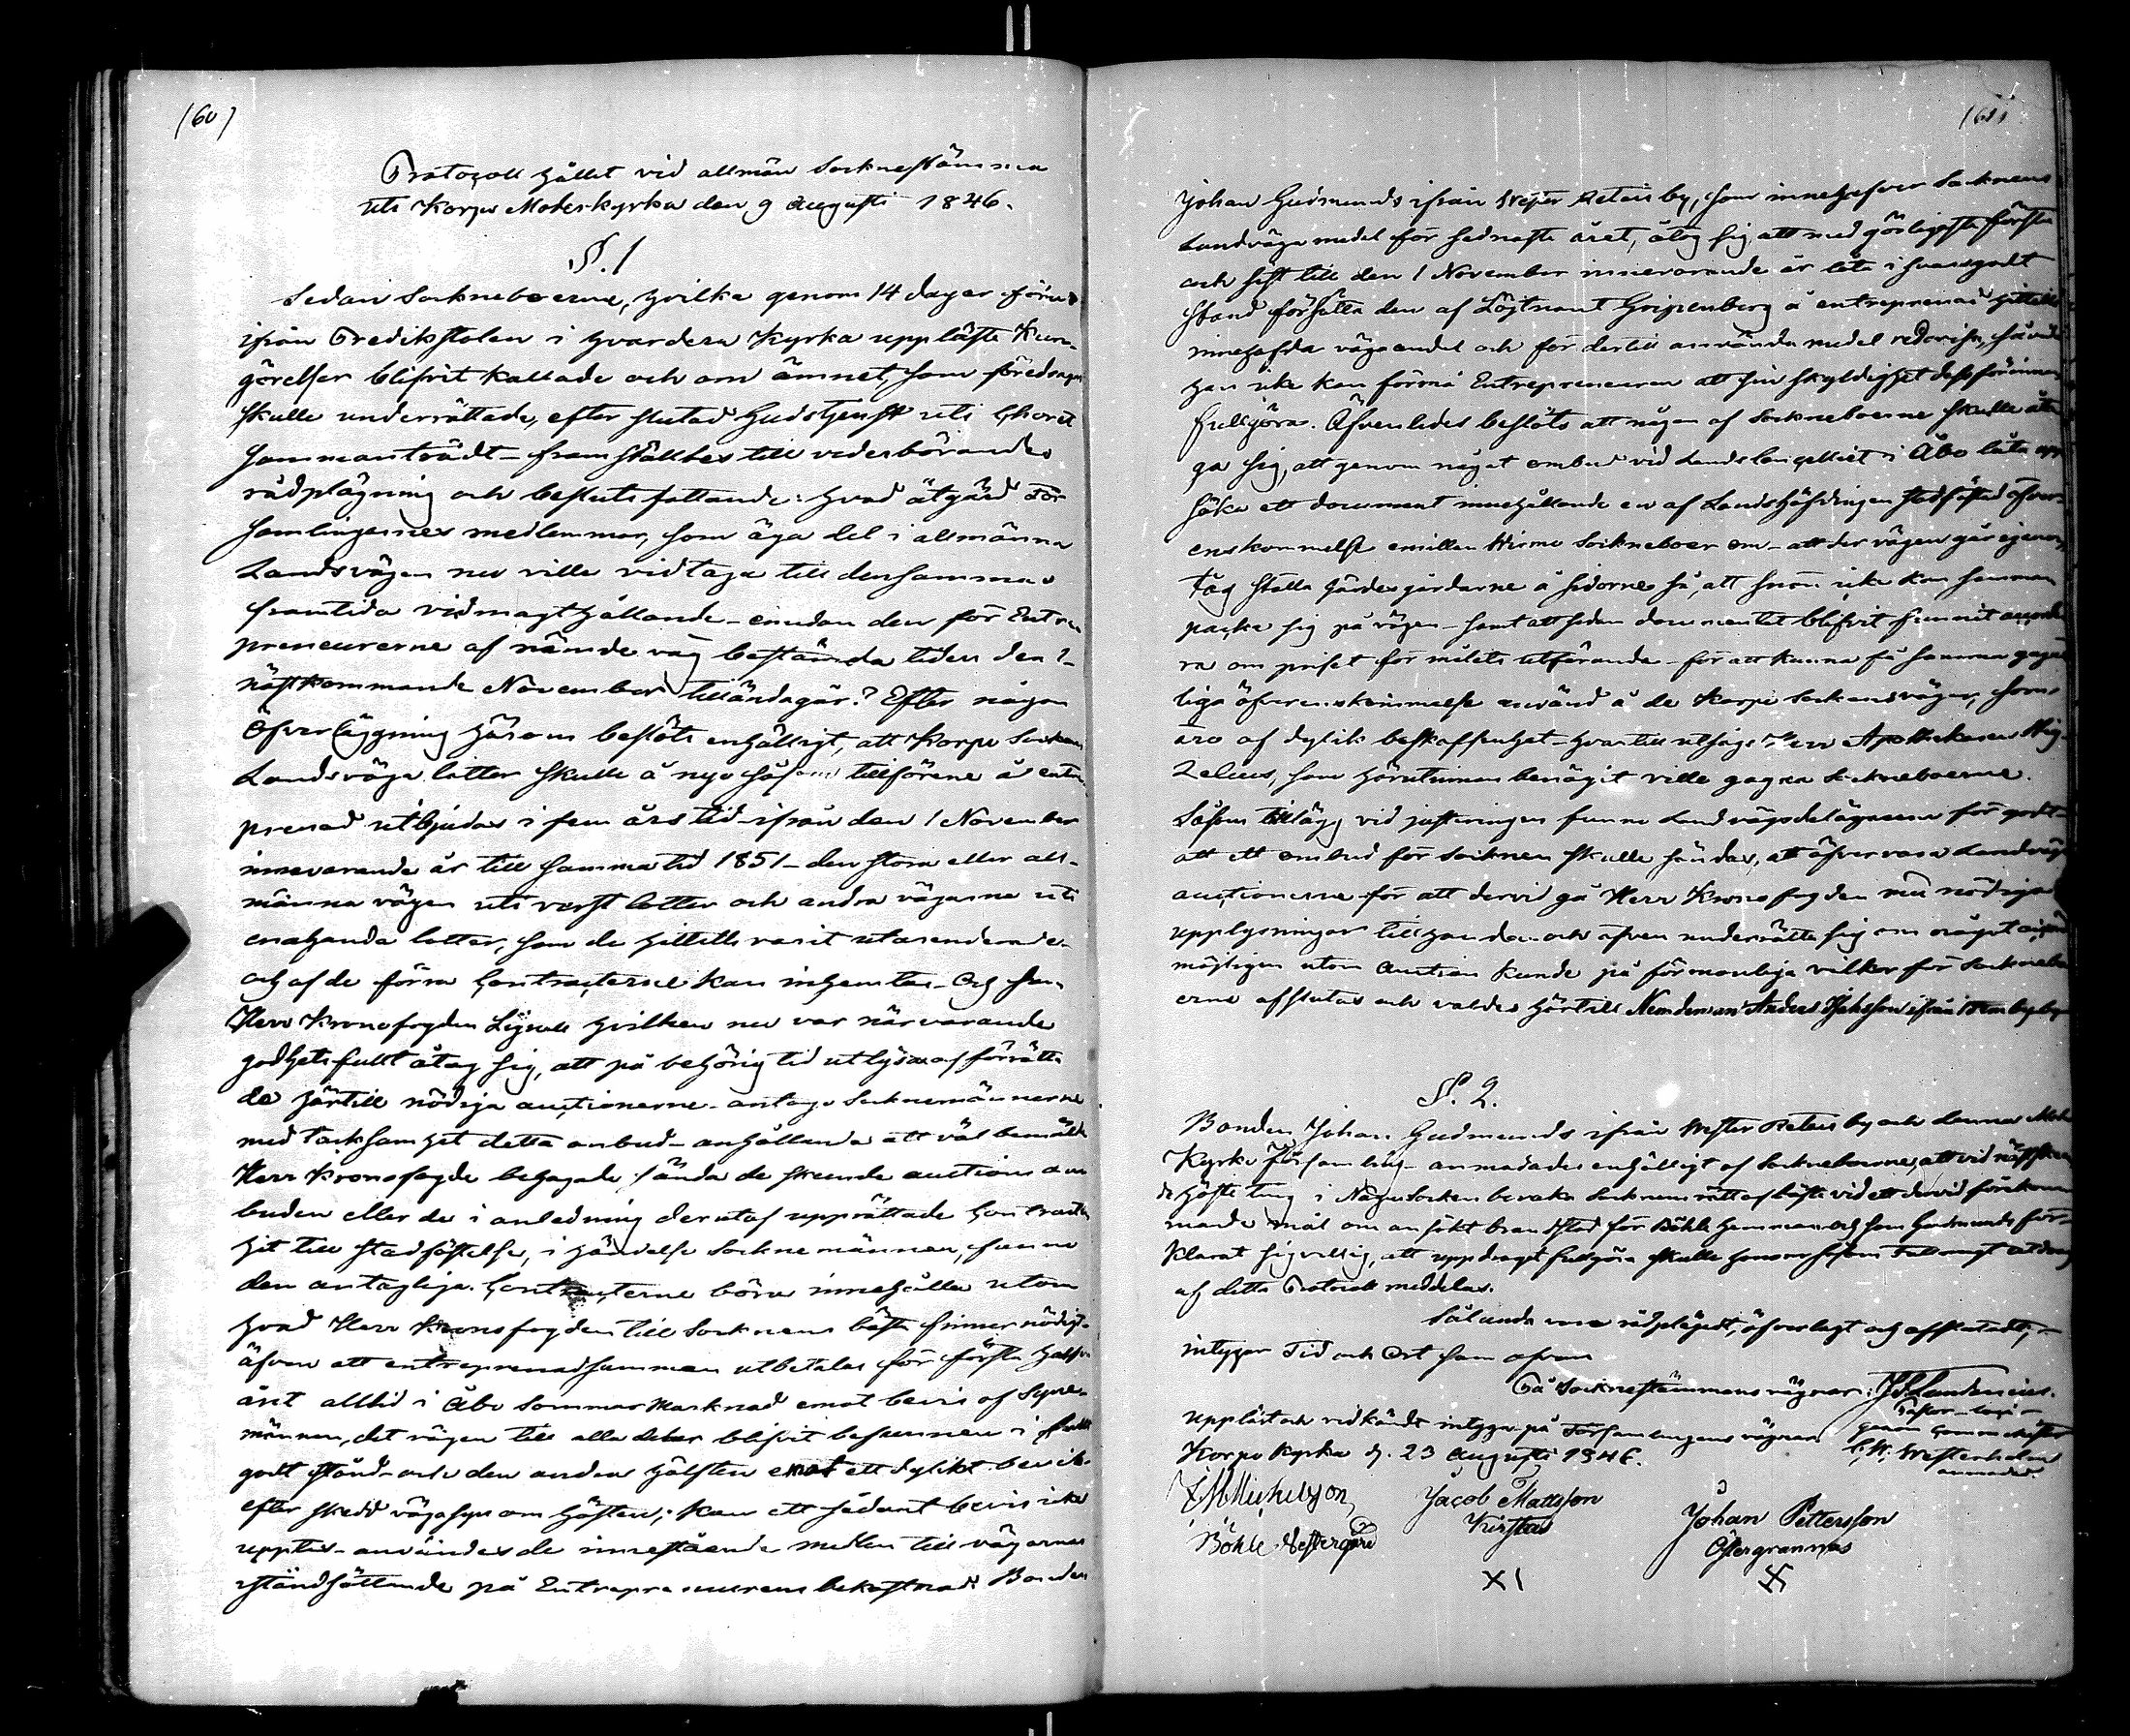 (60)
Protocoll hållet vid allmän Sockneståmma
uti Korpo Moderkyrka den 9 Augusti 1846.
§. 1
Sedan Sockneboerne, hvilka genom 14 dagar förut
ifrån Predikstolen i hvardera Kyrka uppläste Kun-
görelser blifvit kallade och om ämnet, som föredragas
skulle underrättade, efter slutad Gudstjenst uti Choret
sammanträdt – framställtes till vederbörandes
rådplägning och besluts fattande: hvad åtgärd För
samlingarnes medlemmar, som äga del i allmänna
Landsvägen nu ville vidtaga till densammas
framtida vidmagthållande – emedan den för Entre
preneurerne af nämde väg bestämda tiden den 1
nästkommande November tilländagår? Efter någon
öfverläggning härom beslöts enhälligt, att Korpo Socknens
Landsvägs lotter skulle å nyo såsom tillförene å entre
prenad utbjudas i fem års tid – ifrån den 1 November
innevarande år till samma tid 1851 – den stora eller all-
männa vägen uti verst lotter och andra vägarne uti
enahanda lotter, som de hittills varit utarenderade
och af de förra Contracterne kan inhemtas – Och som
Herr Kronofogden hvilken nu var närvarande
godhetsfullt åtog sig, att på behörig tid utlysa och förrätta
de härtill nödiga auctionerne – antogo Socknemännerne
med tacksamhet detta anbud – anhållande att väl bemälte
Herr Kronofogde behagade sända de skeende auctions an
buden eller de i anledning derutaf upprättade Contracter
hit till stadfästelse, i händelse Socknemännen funno
den antagliga. Contracterne böra innehålla utom
hvad Herr Kronofogden till Socknens bästa finner nödigt –
äfven att entreprenadsumman utbetalas för första halfva
året alltid i Åbo Sommar Marknad emot bevis af Syne-
männen, det vägen till alla delar blifvit befunnen i fullt
godt stånd – och den andra hälften emot ett dylikt bevis
efter skedd vägasyn om hösten; kan ett sådant bevis icke
uppvisas – användes de innestående medlen till vägarnes
iståndsättande på Entrepreneurens bekostnad. Bonden
(61)
Johan Gudmunds ifrån Wester Retais by, som innehafver Socknens
Landsvägs medel för sednaste året, åtog sig, att med görligaste första
och sist till den 1 November innevarande år låta i fvarsgodt
stånd försätta den af Löjtnant Gripenberg å entreprenad hittills
innehafda vägaandel och för dertill använda medel redovisa, såvida
han icke kan förmå Entrepreneuren att sin skyldighet dessförinnan
fullgöra. Äfvenledes beslöts att någon af Sockneboerne skulle åta
ga sig, att genom något ombud vid Landscancelliet i Åbo låta upp
söka ett document innehållande en af Landshöfdingen stadfästad öfver-
enskommelse emellan Hirmo Sockneboer om – att der vägen går igenom
tåg ställa gärdesgårdarne å sidorne så, att snön icke kan samman
packa sig på vägen – samt att sedan documentet blifvit funnit accorde
ra om priset för målets utförande – för att kunna få samma gagne
liga öfverenskommelse använd å de Korpo Sockens vägar, som
äro af dylik beskaffenhet – hvartill utsågs Herr Apothekaren
Zelius, som härutinnan benägit ville gagna Sockneboerne.
Såsom tillägg vid justeringen funno Landvägsdelägarne för godt
att ett ombud för Socknen skulle sändas, att öfvervara Landsvägs
auctionerne för att dervid gå Herr Kronofogden med nödiga
upplysningar tillhanda – och äfven underrätta sig om något
möjligen utom Auction kunde på förmonliga vilkor för Sockneboerne
erne afslutas och valdes härtill Nemdeman Anders Isaksson ifrån
§. 2.
Bonden Johan Gudmunds ifrån Wester Retais by och denna Moder
Kyrko Församling – anmodades enhälligt af Sockneboerne, att vid nästkom
de höste ting i Nagu Socken bevaka Socknens rätt och bästa vid ett dervid förekom
mande mål om ansökt brandstod för Böhle hemman och som Gudmunds för-
klarat sig villig, att uppdraget fullgöra skulle honom såsom fullmagt utdrag
af detta Protocoll meddelas.
Sålunda vara rådplägadt, öfverlagt och afslutadt,
intygar Tid och Ort som ofvan
På Socknestämmans vägnar: J. S. Landenius.
Pastor
Uppläst och vidkändt intyga på Församlingens vägnar
Korpo Kyrka d. 23 Augusti 1846.
C. W. Westerholm
anmodad.
J. Michelsson
Böhle Westergård
Jacob Mattsson
Kirstas
XI
Johan Pettersson
Östergrannas